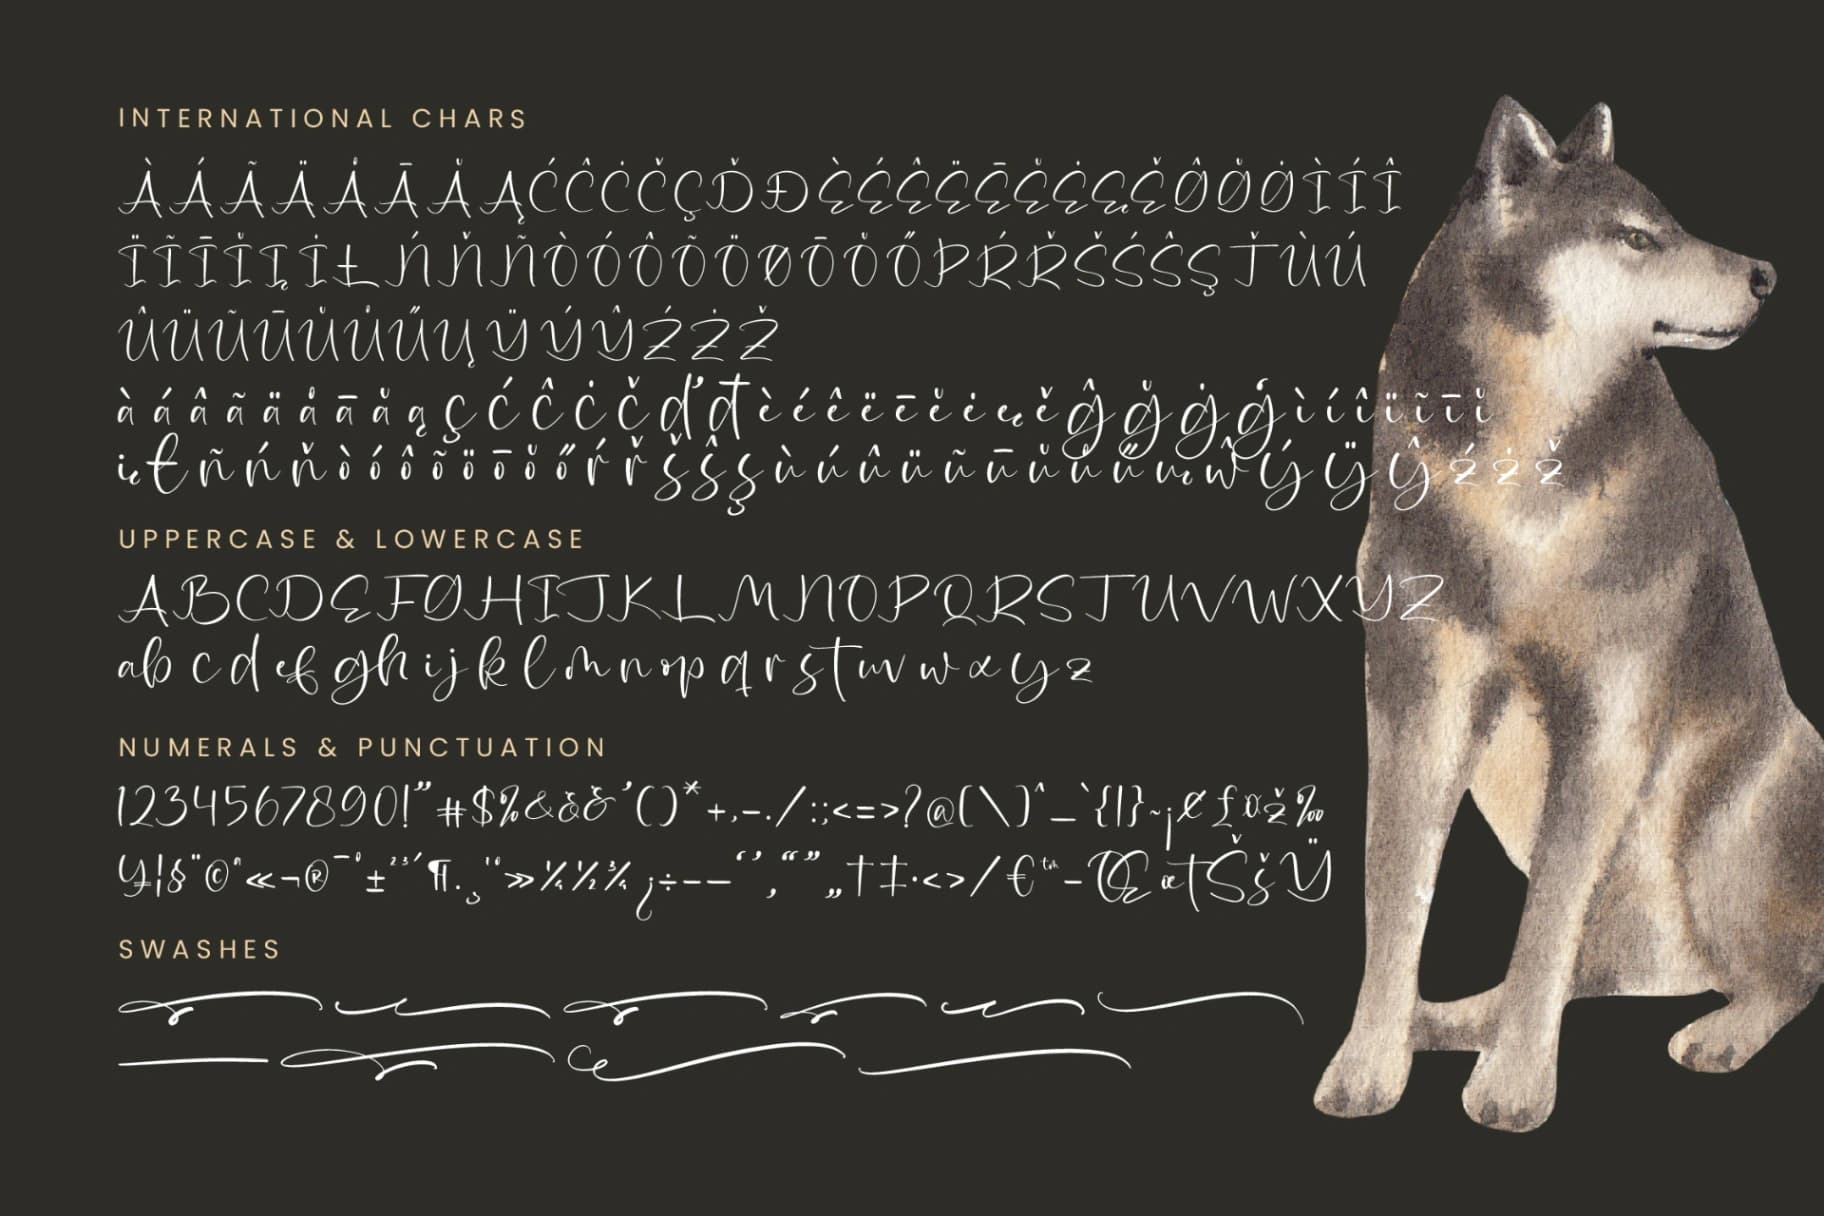 INTERNATIONAL CHARS
ÀÁÃÄÅĀĂĄĆĈĊČÇĎĐÈÉÊËĒĔĖĘĚĜĞĠÌÍÎ
ÏĨĪĬĮİŁŃŇÑÒÓÔÕÖØŌŎŐÞŔŘŠŚŜŞŤÙÚ
ÛÜŨŪŬŮŰŲŸÝŶŹŻŽ
àáâãäåāăąçćĉċčďđèéêëēĕėęěĝğġģìíîïĩīĭ
įłñńňòóôõöōŏőŕřšŝşùúûüũūŭůűųŵýÿŷźżž
UPPERCASE & LOWERCASE
ABCDEFGHIJKLMNOPQRSTUVWXYZ
abcdefghijklmnopqrstuvwxyz
NUMERALS & PUNCTUATION
1234567890!"#$%&'()*+,-./:;<=>?@[\]^_`{|}~¡¢£¤ž‰
¥¦§¨©ª«¬®¯°±²³´¶·¸¹º»¼½¾¿÷–—‘’‚“”„†‡•<>/€™−Œœ ŠšŸ
SWASHES